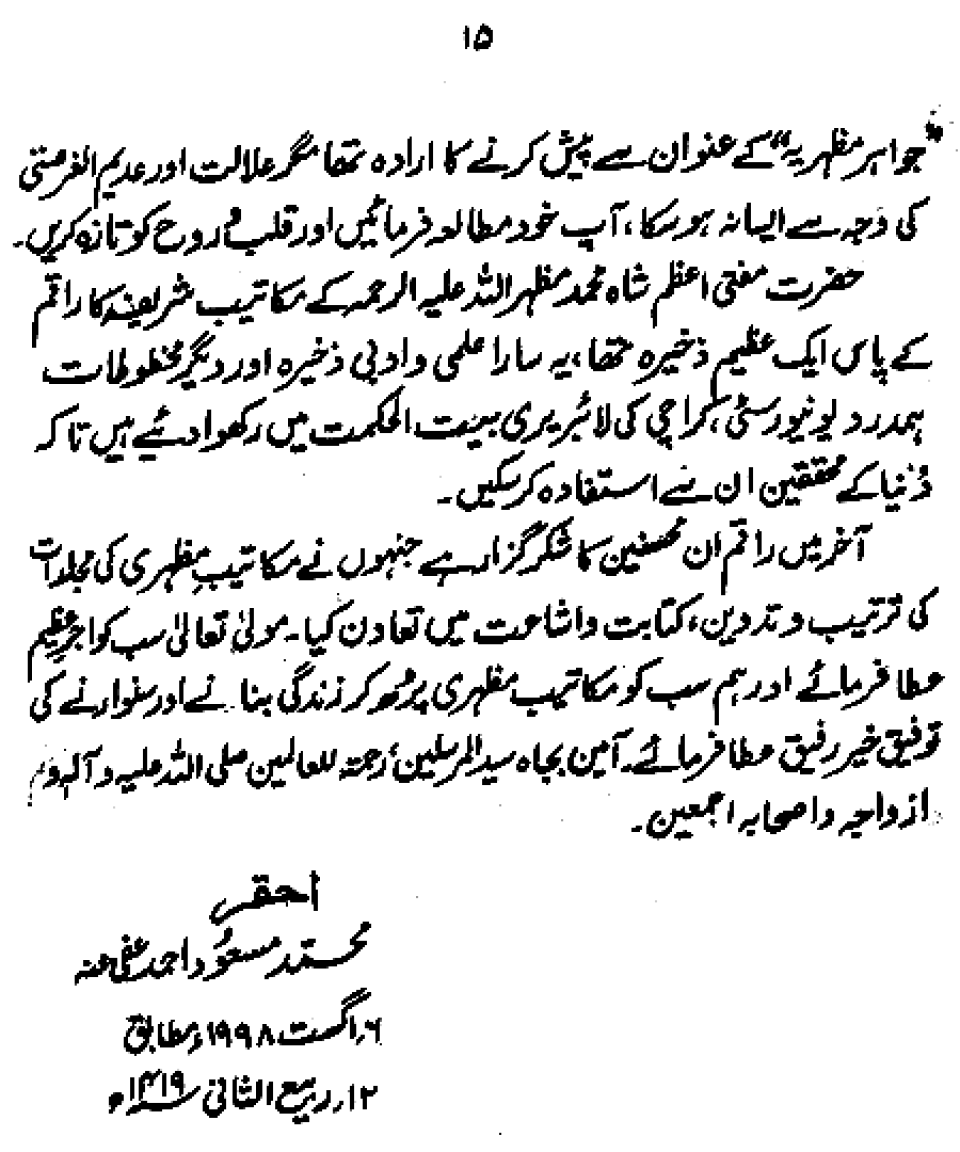 ۱۵
"جواہر مظہریہ" کے عنوان سے پیش کرنے کا ارادہ تھا مگر علالت اور عدیم الفرصتی
کی وجہ سے ایسا نہ ہو سکا، آپ خود مطالعہ فرمائیں اور قلب و روح کو تازہ کریں۔
حضرت مفتی اعظم شاہ محمد مظہر اللہ علیہ الرحمہ کے مکاتیب شریفہ کا راقم
کے پاس ایک عظیم ذخیرہ تھا، یہ سارا علمی و ادبی ذخیرہ اور دیگر مخطوطات
ہمدرد یونیورسٹی، کراچی کی لائبریری بیت الحکمت میں رکھوا دئیے ہیں تا کہ
دُنیا کے محققین ان سے استفادہ کر سکیں۔
آخر میں راقم ان محسنین کا شکر گزار ہے جنہوں نے مکاتیبِ مظہری کی مجلدات
کی ترتیب و تدوین، کتابت و اشاعت میں تعاون کیا۔ مولیٰ تعالیٰ سب کو اجرِ عظیم
عطا فرمائے اور ہم سب کو مکاتیب مظہری پڑھ کر زندگی بنانے اور سنوارنے کی
توفیق خیر رفیق عطا فرمائے۔ آمین بجاہ سید المرسلین رحمتہ للعالمین صلی اللہ علیہ و آلہٖ و
ازواجہ و اصحابہ اجمعین۔
احقر
محمد مسعود احمد عفی عنہ
۶؍ اگست ۱۹۹۸ء مطابق
۱۲؍ ربیع الثانی ۱۴۱۹ھ